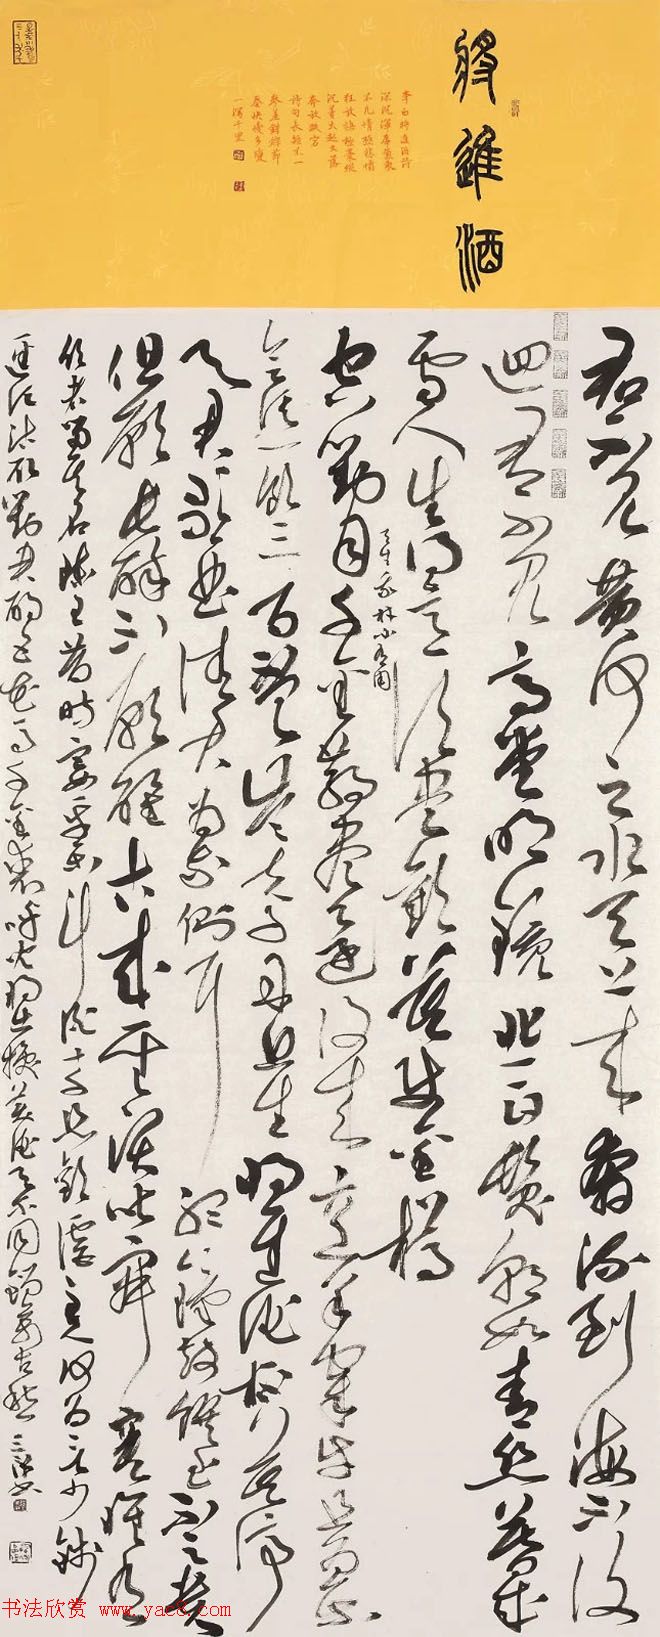 將進酒
李白將進酒詩
深沉渾厚氣象
不凡情極悲憤
狂放語極豪縱
沉著大起大落
奔放跌宕
詩句長短不一
參差錯綜節
奏快慢多變
一瀉千里
君不見黃河之水天上來奔流到海不復
迴君不見高堂明鏡悲白髮朝如青絲暮成
雪人生得意須盡歡莫使金樽
空對月千金散盡還復來烹羊宰牛且為樂
天生我材必有用
會須一飲三百杯岑夫子丹丘生將進酒杯莫停
與君歌一曲請君為我側耳聽鐘鼓饌玉不足貴
但願長醉不願醒古來聖賢皆寂寞惟有
飲者留其名陳王昔時宴平樂斗酒十千恣歡謔主人何為言少錢
逕須沽取對君酌五花馬千金裘呼兒將出換美酒與爾同銷萬古愁
书法欣赏 www.yac8.com